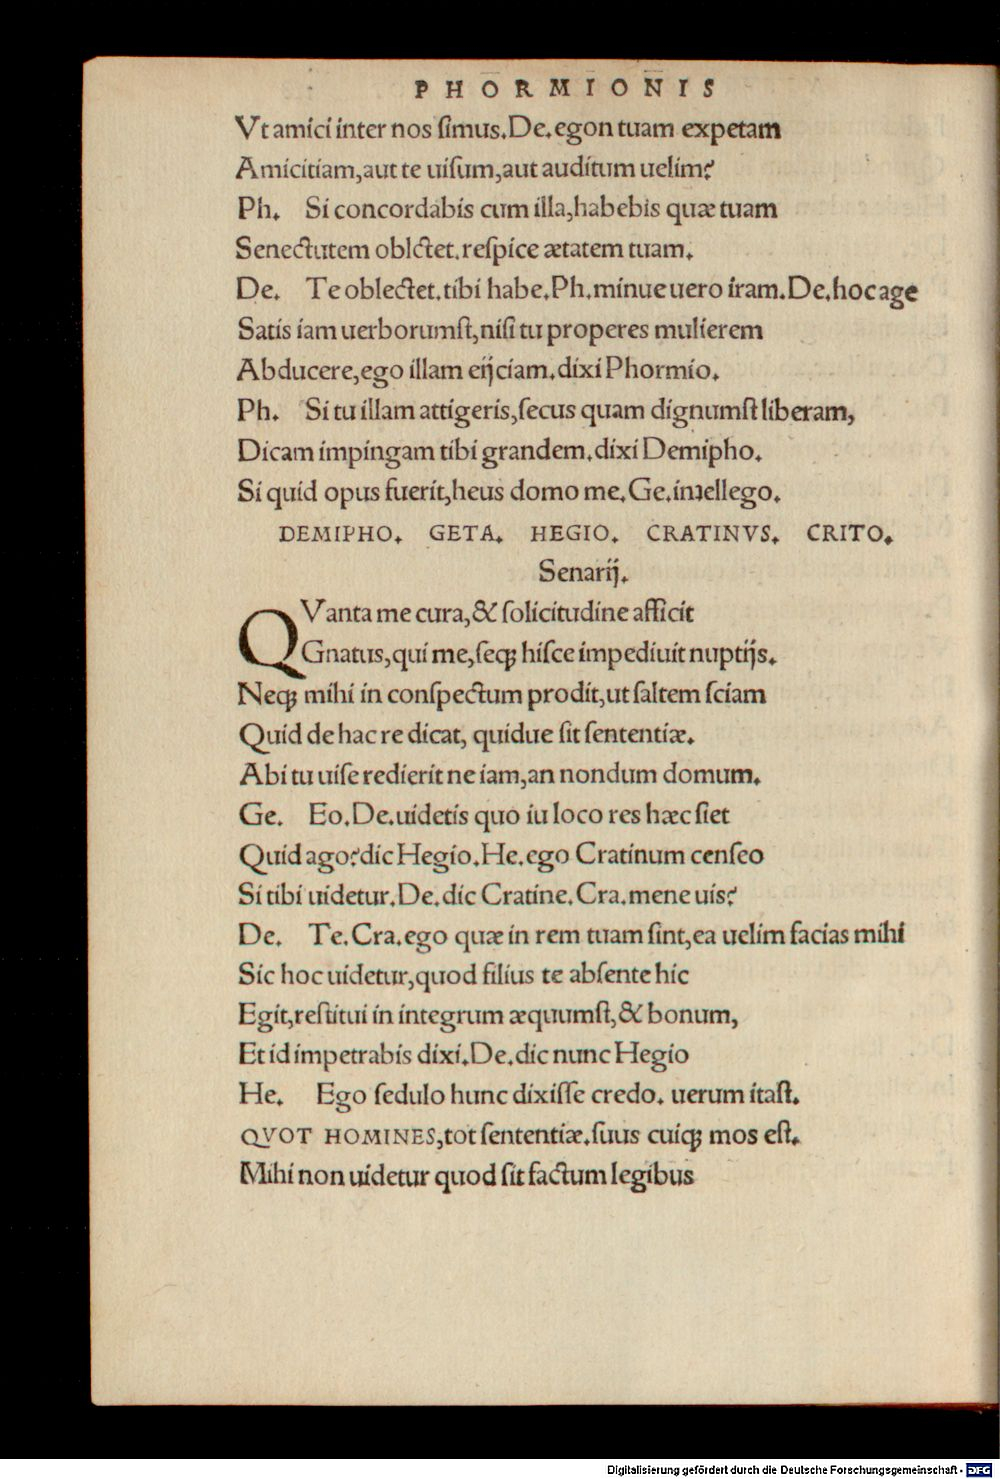 PHORMIONIS
Vt amici inter nos ſimus.De.egon tuam expetam
Amicitiam,aut te uiſum,aut auditum uelim?
Ph. Si concordabis cum illa,habebis quæ tuam
Senectutem oblctet.reſpice ætatem tuam.
De. Te oblectet.tibi habe.Ph.minue uero iram.De.hoc age
Satis iam uerborumſt,niſi tu properes mulierem
Abducere,ego illam eijciam.dixi Phormio.
Ph. Si tu illam attigeris,ſecus quam dignumſt liberam,
Dicam impingam tibi grandem.dixi Demipho.
Si quid opus fuerit,heus domo me.Ge.intellego.
DEMIPHO. GETA. HEGIO. CRATINVS. CRITO.
Senarij.
QVanta me cura,& ſolicitudine afficit
Gnatus,qui me,ſeq; hiſce impediuit nuptijs.
Neq; mihi in conſpectum prodit,ut ſaltem ſciam
Quid de hac re dicat, quidue ſit ſententiæ.
Abi tu uiſe redierit ne iam,an nondum domum.
Ge. Eo.De.uidetis quo iu loco res hæc ſiet
Quid ago?dic Hegio.He.ego Cratinum cenſeo
Si tibi uidetur.De.dic Cratine.Cra.mene uis?
De. Te.Cra.ego quæ in rem tuam ſint,ea uelim facias mihi
Sic hoc uidetur,quod filius te abſente hic
Egit,reſtitui in integrum æquumſt,& bonum,
Et id impetrabis dixi.De.dic nunc Hegio
He. Ego ſedulo hunc dixiſſe credo. uerum itaſt.
QVOT HOMINES,tot ſententiæ.ſuus cuiq; mos eſt.
Mihi non uidetur quod ſit factum legibus
Digitalisierung gefördert durch die Deutsche Forschungsgemeinschaft - DFG